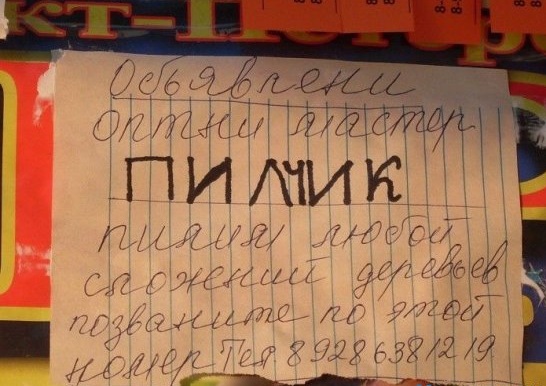 кт-Петер
Обьявлени
оптни мастер
ПИЛЧИК
пилил любой
сложений деревьев
позваните по этой
номер Тел 89286381219